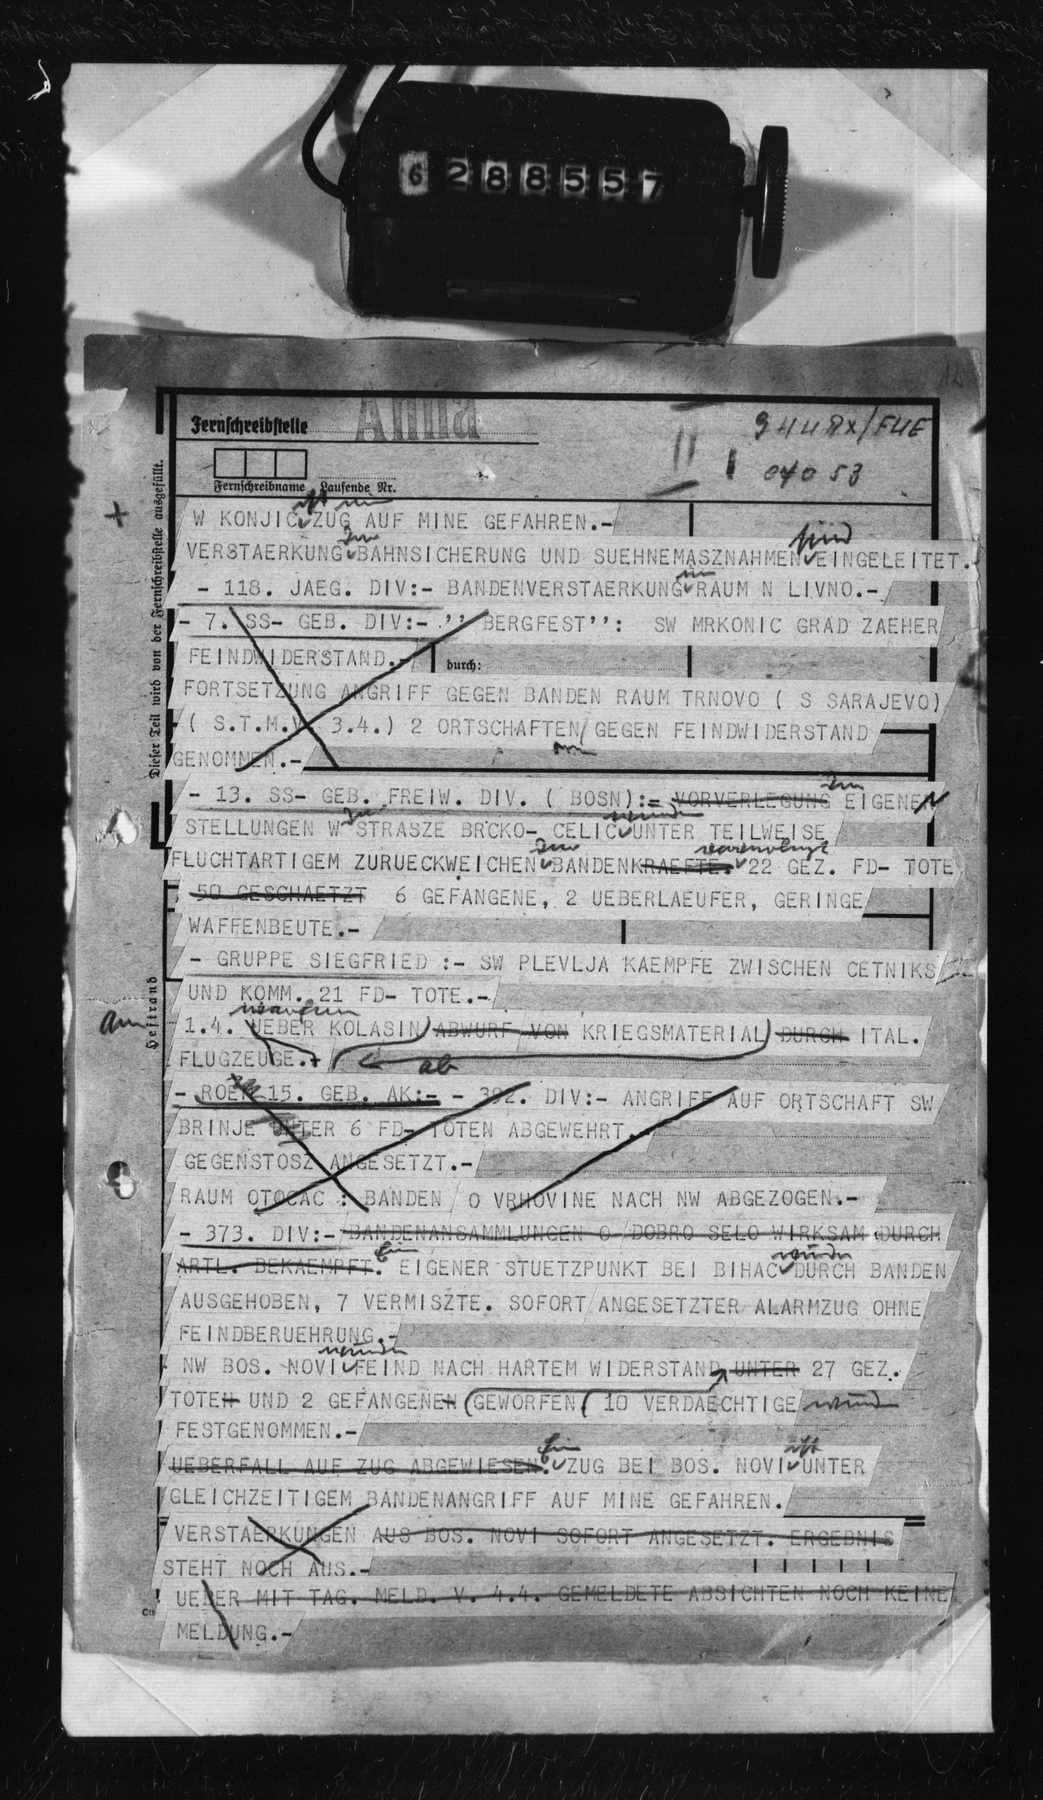 6288557
Fernschreibstelle Anna
Fernschreibname Laufende Nr.
070 53
Dieser Teil wird von der Fernschreibstelle ausgefüllt.
Heftrand
durch:
ist ein
W KONJIC ZUG AUF MINE GEFAHREN.-
sind
VERSTAERKUNG BAHNSICHERUNG UND SUEHNEMASZNAHMEN EINGELEITET.
im
- 118. JAEG. DIV:- BANDENVERSTAERKUNG RAUM N LIVNO.-
- 7. SS- GEB. DIV:- ,, BERGFEST'': SW MRKONIC GRAD ZAEHER
FEINDWIDERSTAND.-
FORTSETZUNG ANGRIFF GEGEN BANDEN RAUM TRNOVO ( S SARAJEVO)
( S.T.M.V. 3.4.) 2 ORTSCHAFTEN GEGEN FEINDWIDERSTAND
GENOMMEN.-
- 13. SS- GEB. FREIW. DIV. ( BOSN):= VORVERLEGUNG EIGENEN
STELLUNGEN W STRASZE BRCKO- CELIC UNTER TEILWEISE
FLUCHTARTIGEM ZURUECKWEICHEN BANDENKRAEFTE. 22 GEZ. FD- TOTE
, 50 GESCHAETZT 6 GEFANGENE, 2 UEBERLAEUFER, GERINGE
WAFFENBEUTE.-
- GRUPPE SIEGFRIED :- SW PLEVLJA KAEMPFE ZWISCHEN CETNIKS
UND KOMM. 21 FD- TOTE.-
am
warfen
1.4. UEBER KOLASIN ABWURF VON KRIEGSMATERIAL DURCH ITAL.
FLUGZEUGE.+
ab
- ROEM 15. GEB. AK:- - 392. DIV:- ANGRIFF AUF ORTSCHAFT SW
BRINJE UNTER 6 FD- TOTEN ABGEWEHRT.
GEGENSTOSZ ANGESETZT.-
RAUM OTOCAC : BANDEN O VRHOVINE NACH NW ABGEZOGEN.-
- 373. DIV:- BANDENANSAMMLUNGEN O DOBRO SELO WIRKSAM DURCH
wurde
ARTL. BEKAEMPFT. EIGENER STUETZPUNKT BEI BIHAC DURCH BANDEN
AUSGEHOBEN, 7 VERMISZTE. SOFORT ANGESETZTER ALARMZUG OHNE
FEINDBERUEHRUNG.-
wurde
NW BOS. NOVI FEIND NACH HARTEM WIDERSTAND UNTER 27 GEZ.
TOTEN UND 2 GEFANGENEN GEWORFEN 10 VERDAECHTIGE
FESTGENOMMEN.-
Ein ist
UEBERFALL AUF ZUG ABGEWIESEN. ZUG BEI BOS. NOVI UNTER
GLEICHZEITIGEM BANDENANGRIFF AUF MINE GEFAHREN.
VERSTAERKUNGEN AUS BOS. NOVI SOFORT ANGESETZT. ERGEBNIS
STEHT NOCH AUS.-
UEBER MIT TAG. MELD. V. 4.4. GEMELDETE ABSICHTEN NOCH KEINE
MELDUNG.-